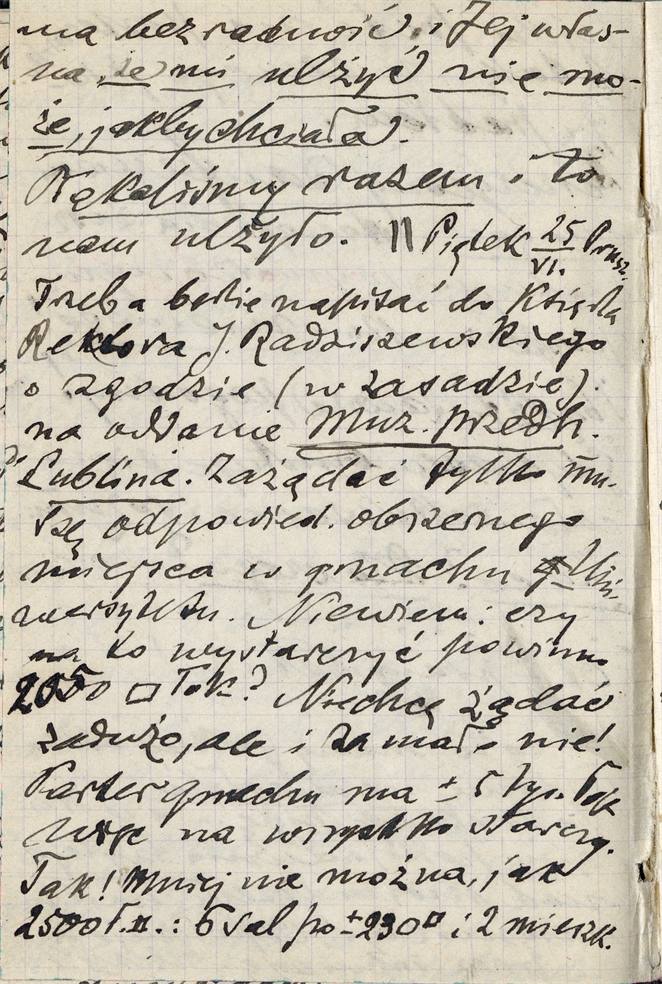 ma bezradność, i Jej włas-
na, że mi ulżyć nie mo-
że, jakby chciała.
Płakaliśmy razem i to
nam ulżyło. || Piątek 25/VI. Prusz.
Trzeba będzie napisać do Księdza
Rektora J. Radziszewskiego
o zgodzie (w zasadzie).
na oddanie Muz. Przedh.
Lublina. Zażądać tylko mu-
szę odpowied. obszernego
miejsca w gmachu Uni-
wersytetu. Niewiem: czy
na to wystarczyć powinno
2050 □ Tok? Niechcę żądać
zadużo, ale i za mało nie!
Parter gmachu ma ± 5 tys. łok
więc na wszystko starczy.
Tak! Mniej nie można, jak
2500 ł.□.: 6 sal po ± 230 □ i 2 mieszk.